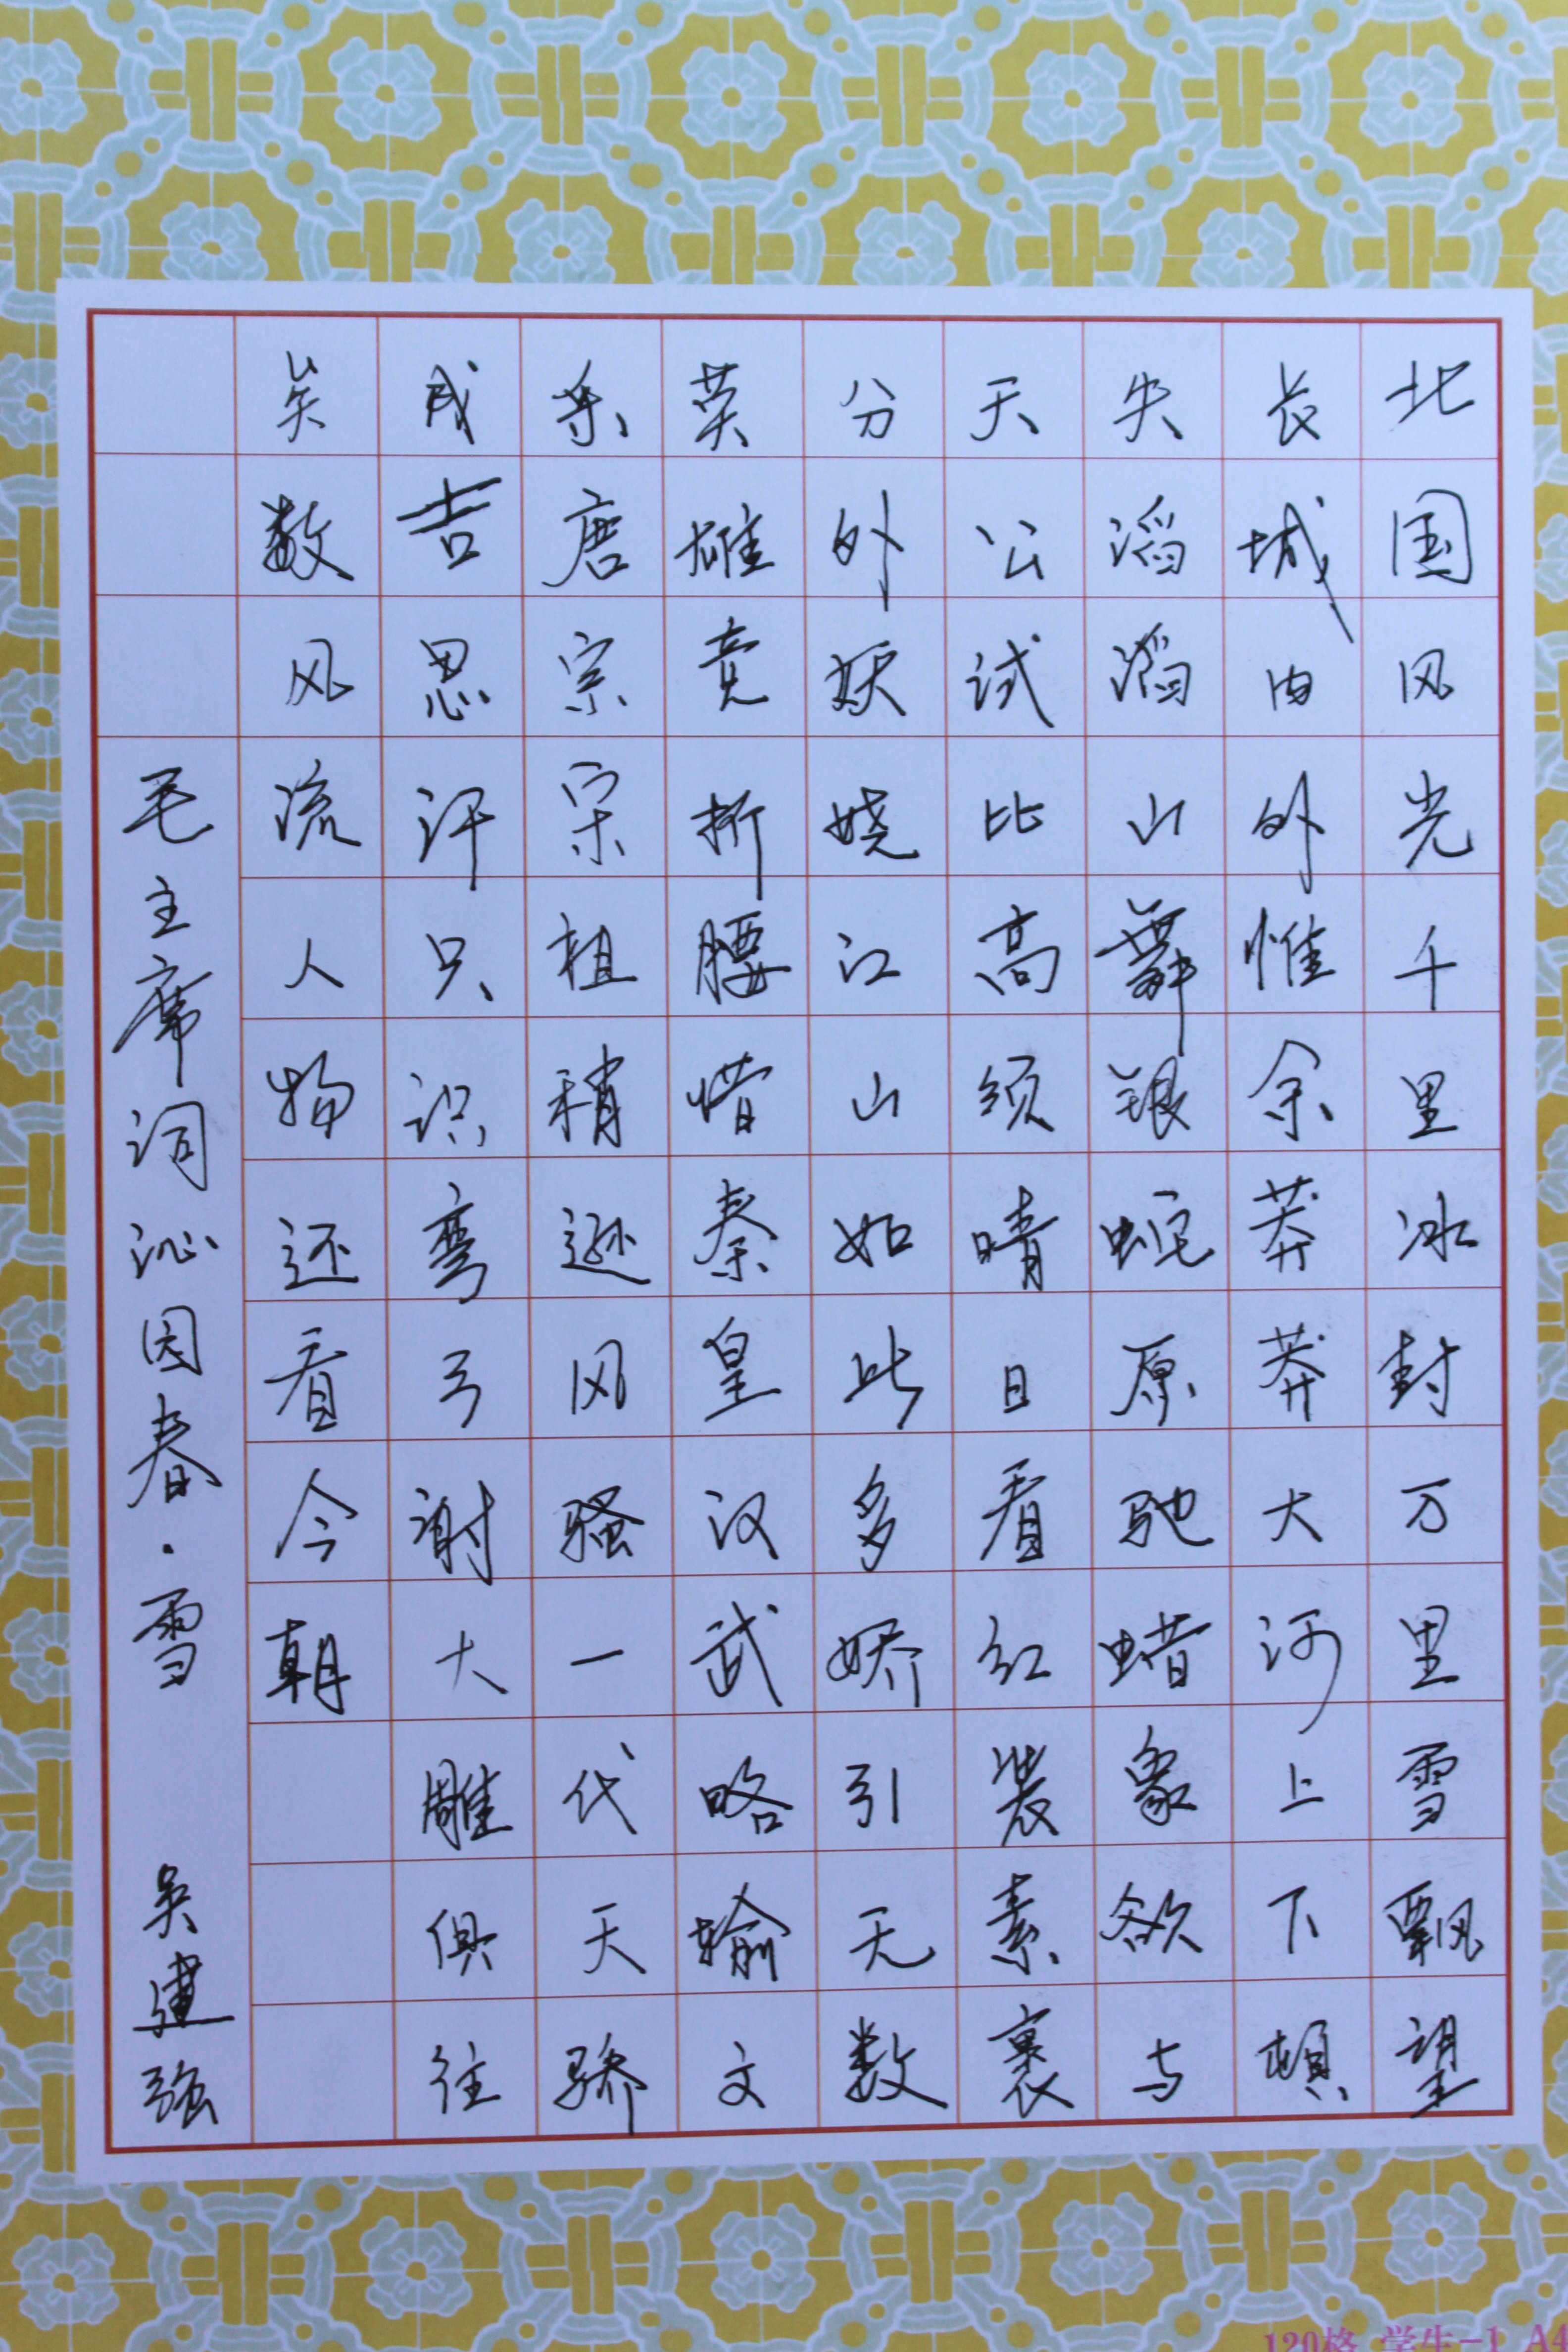 北国风光千里冰封万里雪飘望
长城内外惟余莽莽大河上下頓
失滔滔山舞银蛇原驰蜡象欲与
天公试比高须晴日看红装素裹
分外妖娆江山如此多娇引无数
英雄竞折腰惜秦皇汉武略输文
采唐宗宋祖稍逊风骚一代天骄
成吉思汗只识弯弓谢大雕俱往
矣数风流人物还看今朝
毛主席词沁因春·雪 吴建强
120格 学生-1 A